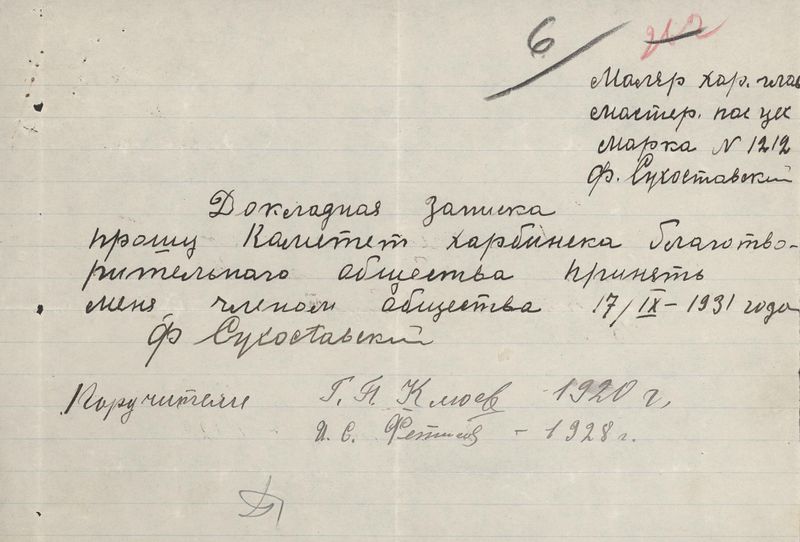 6
212
Маляр хар. глав
мастер. пас цех
марка N 1212
Ф. Сухоставский
Докладная записка
прошу Камитет харбинска благотво-
рительнаго общества принять
меня членом общества 17/IX-1931 года
Ф Сухоставский
Поручители Г. П. Клюев 1920 г,
И. С. Фетисов - 1928 г.